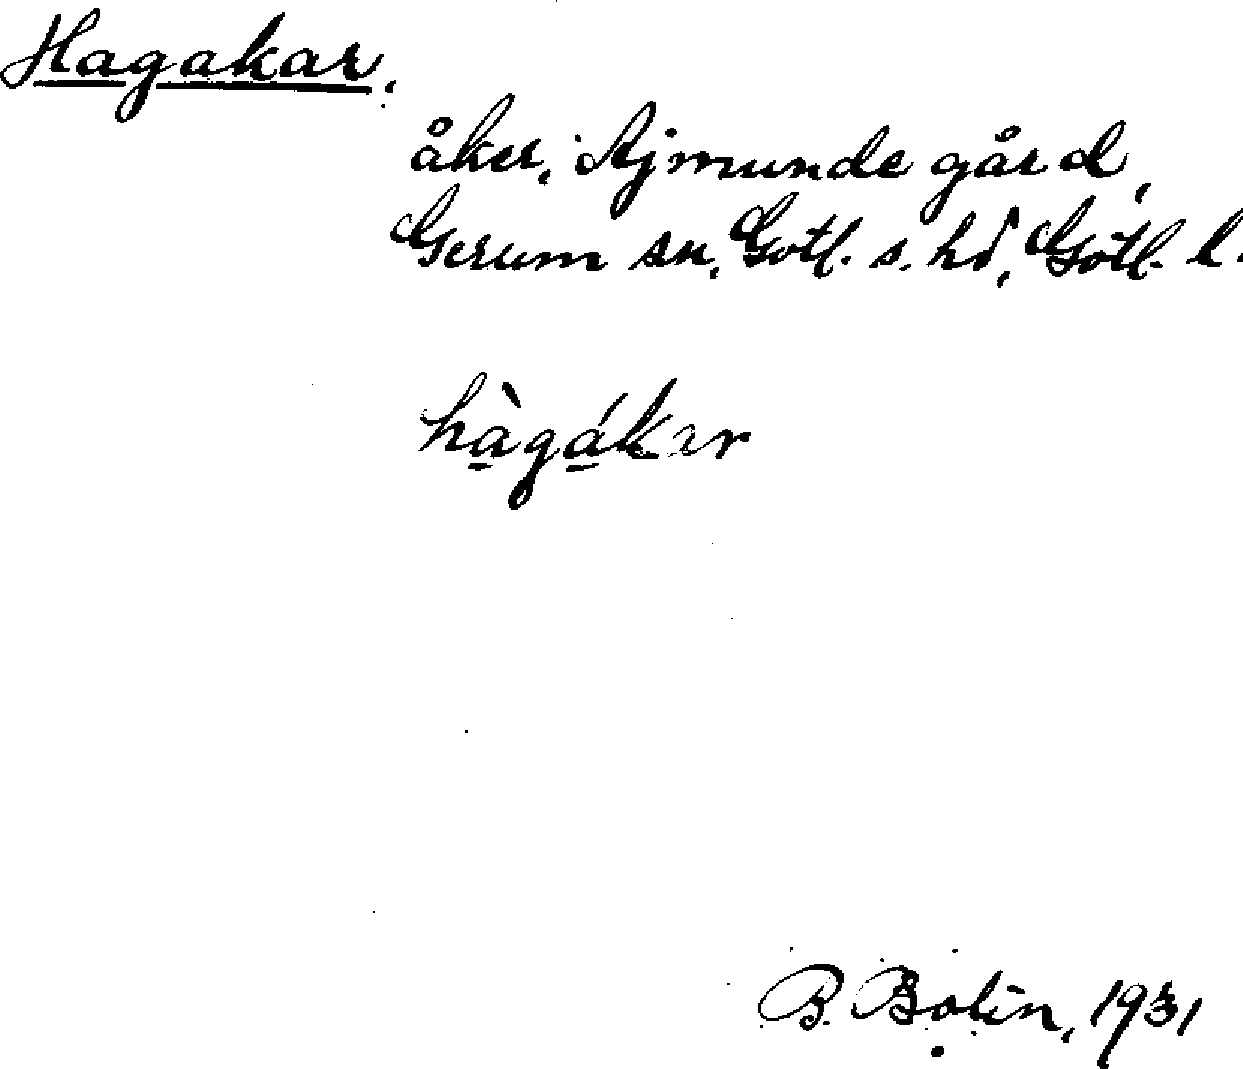 Hagakar.
åker, Ajmunde gård,
Gerum sn, Gotl. s. hd, Gotl. l.
hàgákar
B. Bolin, 1931